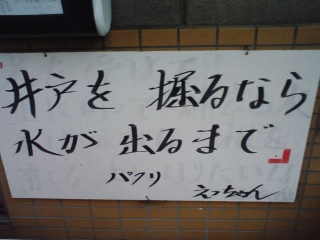 井戸を 掘るなら
水が 出るまで
パクリ えっちゃん